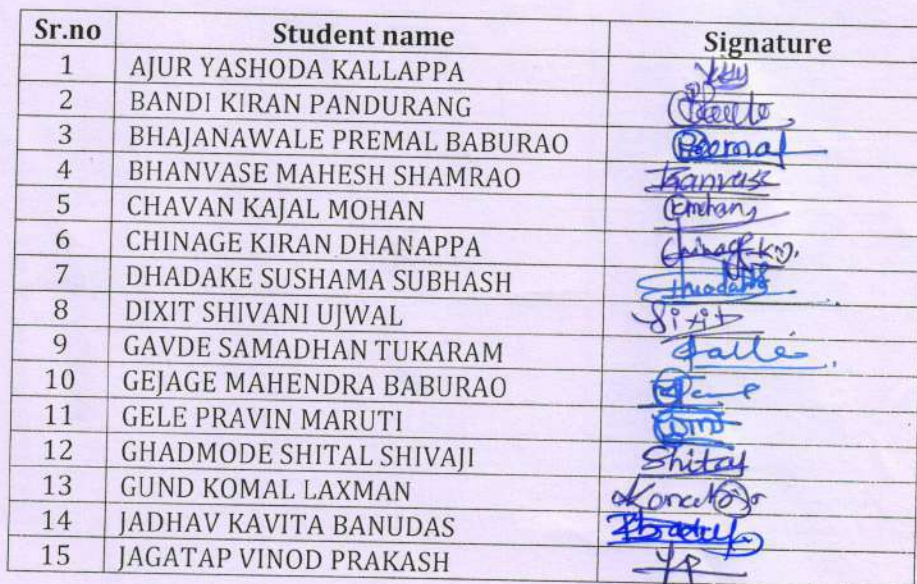 Sr.no Student name Signature
1 AJUR YASHODA KALLAPPA
2 BANDI KIRAN PANDURANG
3 BHAJANAWALE PREMAL BABURAO Premal
4 BHANVASE MAHESH SHAMRAO
5 CHAVAN KAJAL MOHAN
6 CHINAGE KIRAN DHANAPPA Chinage K.D.
7 DHADAKE SUSHAMA SUBHASH
8 DIXIT SHIVANI UJWAL Dixit
9 GAVDE SAMADHAN TUKARAM
10 GEJAGE MAHENDRA BABURAO
11 GELE PRAVIN MARUTI
12 GHADMODE SHITAL SHIVAJI Shital
13 GUND KOMAL LAXMAN
14 JADHAV KAVITA BANUDAS
15 JAGATAP VINOD PRAKASH